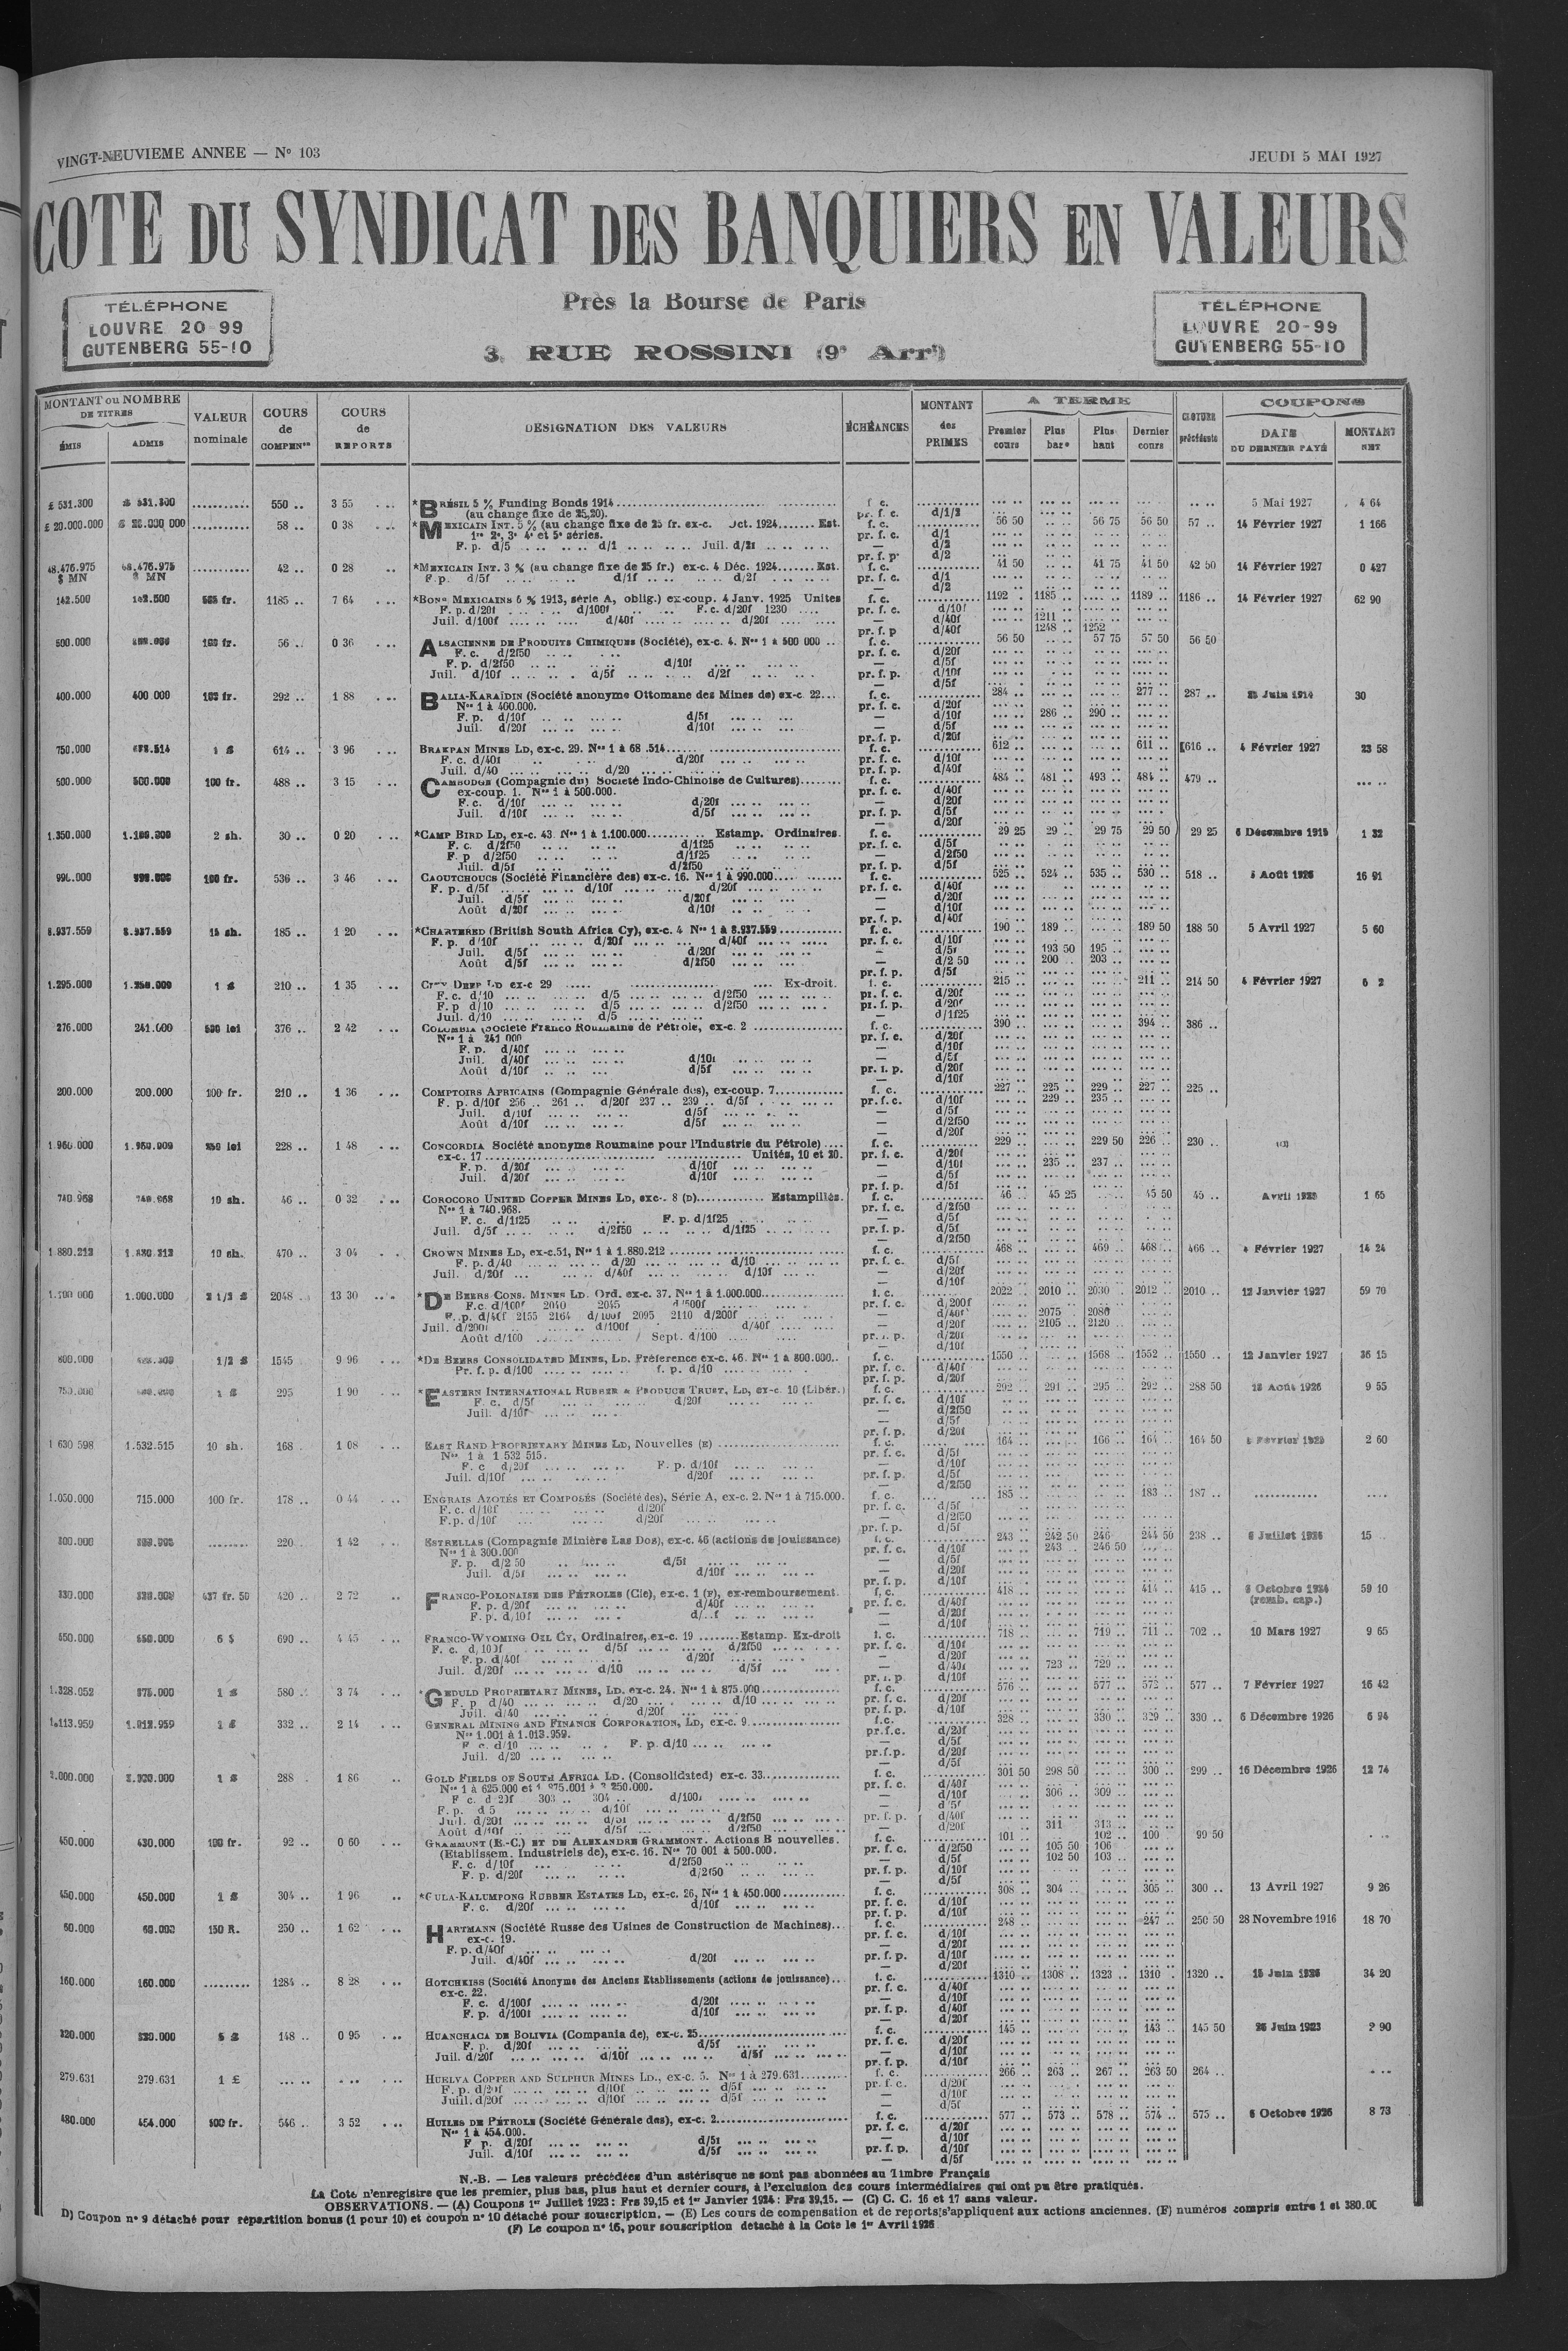 VINGT-NEUVIEME ANNEE — N° 103
JEUDI 5 MAI 1927
COTE DU SYNDICAT DES BANQUIERS EN VALEURS
Près la Bourse de Paris
3, RUE ROSSINI (9e Arrt)
TÉLÉPHONE
LOUVRE 20-99
GUTENBERG 55-10
TÉLÉPHONE
LOUVRE 20-99
GUTENBERG 55-10
MONTANT ou NOMBRE DE TITRES
ÉMIS ADMIS
VALEUR nominale
COURS de COMPENon
COURS de REPORTS
DÉSIGNATION DES VALEURS
ÉCHÉANCES
MONTANT des PRIMES
A TERME
Premier cours Plus bas Plus haut Dernier cours
CLOTURE précédente
COUPONS
DATE DU DERNIER PAYÉ MONTANT NET
£ 531.300 550 .. 3 55 *BRÉSIL 5 % Funding Bonds 1914 f. c. 5 Mai 1927 4 64
(au change fixe de 25,20). pr. f. c. d/1/2
£ 20.000.000 58 .. 0 38 *MEXICAIN INT. 5 % (au change fixe de 25 fr. ex-c. Oct. 1924 Est. f. c. 56 50 56 75 56 50 57 .. 14 Février 1927 1 166
1re 2e, 3e 4e et 5e séries. pr. f. c. d/1
F. p. d/5 d/1 Juil. d/2f — d/2
48.476.975 $ MN 42 .. 0 28 *MEXICAIN INT. 3 % (au change fixe de 25 fr.) ex-c. 4 Déc. 1924 Est. f. c. 41 50 41 75 41 50 42 50 14 Février 1927 0 427
F.p. d/5f d/1f d/2f pr. f. c. d/1
142.500 1185 .. 7 64 *BONS MEXICAINS 6 % 1913, série A, oblig.) ex-coup. 4 Janv. 1925 Unités f. c. 1192 .. 1185 .. 1189 .. 1186 .. 14 Février 1927 62 90
F. p. d/20f d/100f F.c. d/20f 1230 pr. f. c. d/10f
Juil. d/100f d/40f d/20f — d/40f 1211 ..
pr. f. p d/40f 1248 .. 1252
500.000 100 fr. 56 .. 0 36 ALSACIENNE DE PRODUITS CHIMIQUES (Société), ex-c. 4. Nos 1 à 500 000 f. c. 56 50 57 75 57 50 56 50
F. c. d/2f50 pr. f. c. d/20f
F. p. d/2f50 d/10f — d/5f
Juil. d/10f d/5f d/2f pr. f. p. d/10f
— d/5f
400.000 400 000 292 .. 1 88 BALIA-KARAÏDIN (Société anonyme Ottomane des Mines de) ex-c. 22 f. c. 284 .. 277 .. 287 .. 30
Nos 1 à 400.000. pr. f. c. d/20f
F. p. d/10f d/5f — d/10f 286 .. 290 ..
Juil. d/20f d/10f — d/5f
pr. f. p. d/20f
750.000 614 .. 3 96 BRAKPAN MINES LD, ex-c. 29. f. c. 612 .. 611 .. 616 .. 4 Février 1927 23 58
F. c. d/40f d/20f pr. f. c. d/10f
Juil. d/40 d/20 pr. f. p. d/40f
500.000 500.000 100 fr. 488 .. 3 15 CAMBODGE (Compagnie du) Société Indo-Chinoise de Cultures) f. c. 484 .. 481 .. 493 .. 484 .. 479 ..
ex-coup. 1. Nos 1 à 500.000. pr. f. c. d/40f
F. c. d/10f d/20f — d/20f
Juil. d/10f d/5f pr. f. p. d/5f
— d/20f
1.350.000 2 sh. 30 .. 0 20 *CAMP BIRD LD, ex-c. 43. Nos 1 à 1.100.000 Estamp. Ordinaires. f. c. 29 25 29 .. 29 75 29 50 29 25 1 32
F. c. d/2f50 d/1f25 pr. f. c. d/5f
F. p d/2f50 d/1f25 — d/2f50
Juil. d/5f d/2f50 pr. f. p. d/5f
990.000 100 fr. 536 .. 3 46 CAOUTCHOUCS (Société Financière des) ex-c. 16. Nos 1 à 990.000 f. c. 525 .. 524 .. 535 .. 530 .. 518 .. 16 91
F. p. d/5f d/10f d/20f pr. f. c. d/40f
Juil. d/5f d/20f — d/20f
Août d/20f d/10f — d/10f
pr. f. p. d/40f
8.937.559 8.937.559 15 sh. 185 .. 1 20 *CHARTERED (British South Africa Cy), ex-c. 4 Nos 1 à 8.937.559 f. c. 190 .. 189 .. 189 50 188 50 5 Avril 1927 5 60
F. p. d/10f d/20f d/40f pr. f. c. d/10f
Juil. d/5f d/20f — d/5f 193 50 195 ..
Août d/5f d/2f50 — d/2 50 200 .. 203 ..
pr. f. p. d/5f
1.295.000 210 .. 1 35 CITY DEEP LD ex-c 29 Ex-droit. f. c. 215 .. 211 .. 214 50 4 Février 1927
F. c. d/10 d/5 d/2f50 pr. f. c. d/20f
F. p d/10 d/5 d/2f50 pr. f. p. d/20f
Juil. d/10 d/5 — d/1f25
276.000 241.000 500 lei 376 .. 2 42 COLOMBIA (Société Franco Roumaine de Pétrole, ex-c. 2 f. c. 390 .. 394 .. 386 ..
Nos 1 à 241 000 pr. f. c. d/20f
F. p. d/40f — d/10f
Juil. d/40f d/10f — d/5f
Août d/10f d/5f pr. f. p. d/20f
— d/10f
200.000 200.000 100 fr. 210 .. 1 36 COMPTOIRS AFRICAINS (Compagnie Générale des), ex-coup. 7 f. c. 227 .. 225 .. 229 .. 227 .. 225 ..
F. p. d/10f 256 .. 261 .. d/20f 237 .. 239 .. d/5f pr. f. c. d/10f 229 .. 235 ..
Juil. d/10f d/5f — d/5f
Août d/10f d/5f — d/2f50
— d/20f
1.960.000 250 lei 228 .. 1 48 CONCORDIA Société anonyme Roumaine pour l'Industrie du Pétrole) f. c. 229 .. 229 50 226 .. 230 ..
ex-c. 17 Unités, 10 et 20. pr. f. c. d/20f
F. p. d/20f d/10f — d/10f 235 .. 237 ..
Juil. d/20f d/10f — d/5f
pr. f. p. d/5f
740.968 740.968 10 sh. 46 .. 0 32 COROCORO UNITED COPPER MINES LD, ex-c. 8 (D) Estampillés. f. c. 46 .. 45 25 45 50 45 .. 1 65
Nos 1 à 740.968. pr. f. c. d/2f50
F. c. d/1f25 F. p. d/1f25 — d/5f
Juil. d/5f d/2f50 d/1f25 pr. f. p. d/5f
— d/2f50
1.880.212 1.880.212 10 sh. 470 .. 3 04 CROWN MINES LD, ex-c.51, Nos 1 à 1.880.212 f. c. 468 .. 469 .. 468 .. 466 .. 4 Février 1927 14 24
F. p. d/40 d/20 d/10 pr. f. c. d/5f
Juil. d/20f d/40f d/10f — d/20f
— d/10f
1.000.000 2 1/2 £ 2048 .. 13 30 *DE BEERS CONS. MINES LD. Ord. ex-c. 37. Nos 1 à 1.000.000 f. c. 2022 .. 2010 .. 2030 .. 2012 .. 2010 .. 12 Janvier 1927 59 70
F.c. d/100f 2040 2045 d/500f pr. f. c. d/200f
F. p. d/40f 2155 2164 d/100f 2095 2110 d/200f — d/40f 2075 .. 2080
Juil. d/200f d/100f d/40f — d/20f 2105 .. 2120 ..
Août d/100 Sept. d/100 pr. f. p. d/20f
— d/10f
800.000 1/2 £ 1545 9 96 *DE BEERS CONSOLIDATED MINES, LD. Préférence ex-c. 46. Nos 1 à 800.000 f. c. 1550 .. 1568 .. 1552 .. 1550 .. 12 Janvier 1927 36 15
Pr. f. p. d/100 f. p. d/10 pr. f. c. d/40f
pr. f. p. d/20f
750.000 1 £ 295 1 90 *EASTERN INTERNATIONAL RUBBER & PRODUCE TRUST, LD, ex-c. 10 (Libér.) f. c. 292 .. 291 .. 295 .. 292 .. 288 50 9 55
F. c. d/5f d/20f pr. f. c. d/10f
Juil. d/10f — d/2f50
— d/5f
pr. f. p. d/20f
1 630 598 1.532.515 10 sh. 168 1 08 EAST RAND PROPRIETARY MINES LD, Nouvelles (E) f. c. 164 .. 166 .. 164 .. 164 50 2 60
Nos 1 à 1 532 515. pr. f. c. d/5f
F. c d/20f F. p. d/10f — d/10f
Juil. d/10f d/20f pr. f. p. d/5f
— d/2f50
1.050.000 715.000 100 fr. 178 .. 0 44 ENGRAIS AZOTÉS ET COMPOSÉS (Société des), Série A, ex-c. 2. Nos 1 à 715.000. f. c. 185 .. 183 .. 187 ..
F. c. d/10f d/20f pr. f. c. d/5f
F.p. d/10f d/20f — d/2f50
pr. f. p. d/5f
300.000 220 1 42 ESTRELLAS (Compagnie Minière Las Dos), ex-c. 46 (actions de jouissance) f. c. 243 .. 242 50 246 244 50 238 .. 15
Nos 1 à 300.000 pr. f. c. d/10f 243 .. 246 50
F. p. d/2 50 d/5f — d/5f
Juil. d/5f d/10f — d/20f
pr. f. p. d/10f
330.000 437 fr. 50 420 .. 2 72 FRANCO-POLONAISE DES PÉTROLES (Cie), ex-c. 1 (F), ex-remboursement. f. c. 418 .. 414 .. 415 .. 59 10
F. p. d/20f d/40f pr. f. c. d/40f (remb. cap.)
F. p. d/10f — d/20f
— d/10f
550.000 6 $ 690 .. 4 45 FRANCO-WYOMING OIL CY, Ordinaires, ex-c. 19 Estamp. Ex-droit f. c. 718 .. 719 .. 711 .. 702 .. 10 Mars 1927 9 65
F. c. d/10f d/5f d/2f50 pr. f. c. d/10f
F. p. d/40f d/20f — d/20f
Juil. d/20f d/10 d/5f — d/40f 723 .. 729 ..
pr. f. p. d/10f
1.328.052 875.000 1 £ 580 3 74 *GEDULD PROPRIETARY MINES, LD. ex-c. 24. Nos 1 à 875.000 f. c. 576 .. 577 .. 572 .. 577 .. 7 Février 1927 16 42
F. p. d/40 d/20 d/10 pr. f. c. d/20f
Juil. d/40 d/20f pr. f. p. d/10f
1.113.959 332 .. 2 14 GENERAL MINING AND FINANCE CORPORATION, LD, ex-c. 9 f.c. 328 .. 330 .. 329 .. 330 .. 6 Décembre 1926 6 94
Nos 1.001 à 1.013.959. pr.f.c. d/20f
F c. d/10 F. p. d/10 — d/5f
Juil. d/20 pr.f.p. d/20f
— d/5f
288 1 86 GOLD FIELDS OF SOUTH AFRICA LD. (Consolidated) ex-c. 33 f. c. 301 50 298 50 300 .. 299 .. 16 Décembre 1926 12 74
Nos 1 à 625.000 et pr. f. c. d/40f
F c. d 20f 303 .. 304 .. d/100f — d/10f 306 .. 309 ..
F. p. d 5 d/10f — d/5f
Juil. d/20f d/5f d/2f50 pr. f. p. d/40f
Août d/10f d/5f d/2f50 — d/20f 311 313
450.000 430.000 100 fr. 92 .. 0 60 GRAMMONT (E.-C.) ET DE ALEXANDRE GRAMMONT. Actions B nouvelles. f. c. 101 .. 102 .. 100 99 50
(Etablissem. Industriels de), ex-c. 16. Nos 70 001 à 500.000. pr. f. c. d/2f50 105 50 106
F. c. d/10f d/2f50 — d/5f 102 50 103 ..
F. p. d/20f d/2f50 pr. f. p. d/10f
— d/5f
450.000 450.000 1 £ 304 .. 1 96 *GULA-KALUMPONG RUBBER ESTATES LD, ex-c. 26, Nos 1 à 450.000 f. c. 308 .. 304 .. 305 .. 300 .. 13 Avril 1927 9 26
F. c. d/20f d/10f pr. f. c. d/10f
pr. f. p. d/10f
60.000 150 R. 250 .. 1 62 HARTMANN (Société Russe des Usines de Construction de Machines) f. c. 248 .. 247 .. 250 50 28 Novembre 1916 18 70
ex-c. 19. pr. f. c. d/10f
F. p. d/40f — d/20f
Juil. d/40f d/20f pr. f. p. d/10f
— d/20f
160.000 160.000 1284 .. 8 28 HOTCHKISS (Société Anonyme des Anciens Etablissements (actions de jouissance) f. c. 1310 .. 1308 .. 1323 .. 1310 . 1320 .. 34 20
ex-c. 22. pr. f. c. d/40f
F. c. d/100f d/20f — d/10f
F. p. d/100f d/10f pr. f. p. d/40f
— d/20f
320.000 5 £ 148 .. 0 95 HUANCHACA DE BOLIVIA (Compania de), ex-c. 25 f. c. 145 .. 143 .. 145 50 2 90
F. p. d/20f d/5f pr. f. c. d/20f
Juil. d/20f d/10f d/5f — d/10f
pr. f. p. d/10f
279.631 279.631 1 £ HUELVA COPPER AND SULPHUR MINES LD., ex-c. 5. Nos 1 à 279.631 f. c. 266 .. 263 .. 267 .. 263 50 264 ..
F. p. d/20f d/10f d/5f pr. f. c. d/20f
Juil. d/20f d/10f d/5f — d/10f
— d/5f
480.000 454.000 500 fr. 546 .. 3 52 HUILES DE PÉTROLE (Société Générale des), ex-c. 2 f. c. 577 .. 573 .. 578 .. 574 .. 575 .. 8 73
Nos 1 à 454.000. pr. f. c. d/20f
F p. d/20f d/5f — d/10f
Juil. d/10f d/5f pr. f. p. d/10f
— d/5f
N.-B. — Les valeurs précédées d'un astérisque ne sont pas abonnées au Timbre Français
La Cote n'enregistre que les premier, plus bas, plus haut et dernier cours, à l'exclusion des cours intermédiaires qui ont pu être pratiqués.
OBSERVATIONS. — (A) Coupons 1er Juillet 1923 : Frs 39,15 et 1er Janvier 1924 : Frs 39,15. — (C) C. C. 16 et 17 sans valeur.
D) Coupon n° 9 détaché pour répartition bonus (1 pour 10) et coupon n° 10 détaché pour souscription. — (E) Les cours de compensation et de reports s'appliquent aux actions anciennes. (F) numéros compris entre 1 et 380.00
(F) Le coupon n° 16, pour souscription détaché à la Cote le 1er Avril 1926